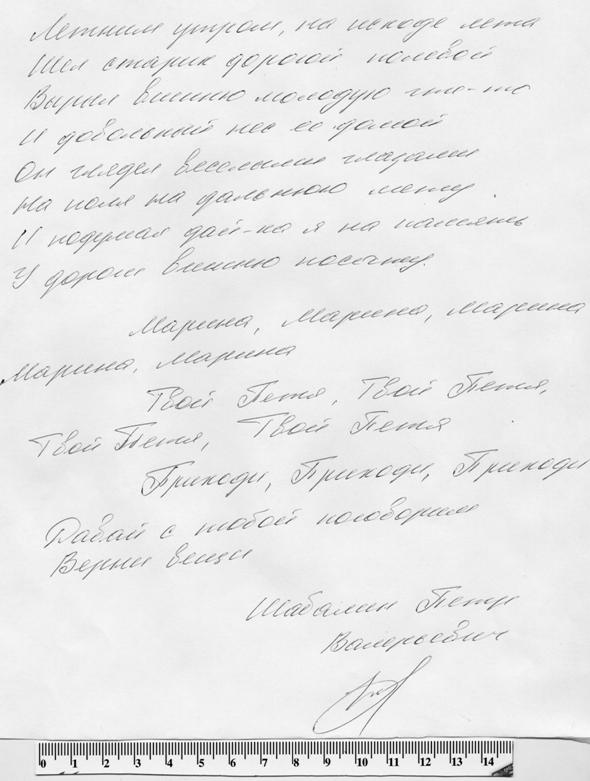 Летним утром, на исходе лета
Шел старик дорогой полевой
Вырыл вишню молодую где-то
И довольный нес ее домой
Он глядел веселыми глазами
На поля на дальнюю межу.
И подумал дай-ка я на память
У дороги вишню посажу.
Марина, Марина, Марина
Марина, Марина
Твой Петя, Твой Петя,
Твой Петя, Твой Петя
Приходи, Приходи, Приходи
Давай с тобой поговорим
Верни вещи
Шабалин Петр
Валерьевич
0 1 2 3 4 5 6 7 8 9 10 11 12 13 14